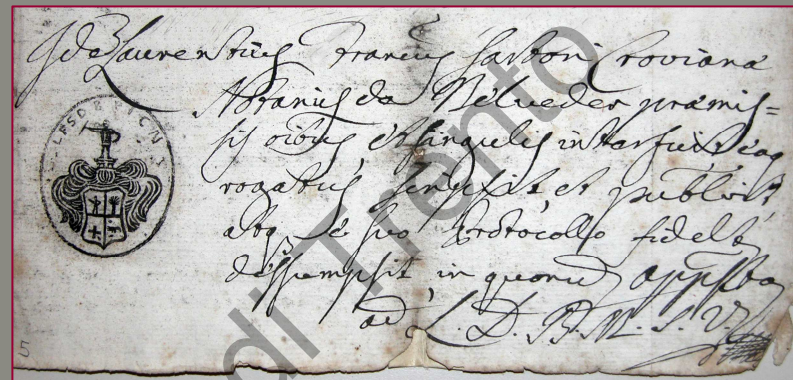 Laurentius Francus Sartori Croviana
Notarius de Belveder præmis=
sis oibus et singulis interfuit, eaq
rogatus scripsit, et publicit
atq è suo Protocollo fidelt
dessumpsit, in quorum
ad L. D. P. M. S. V.
di Trento
5